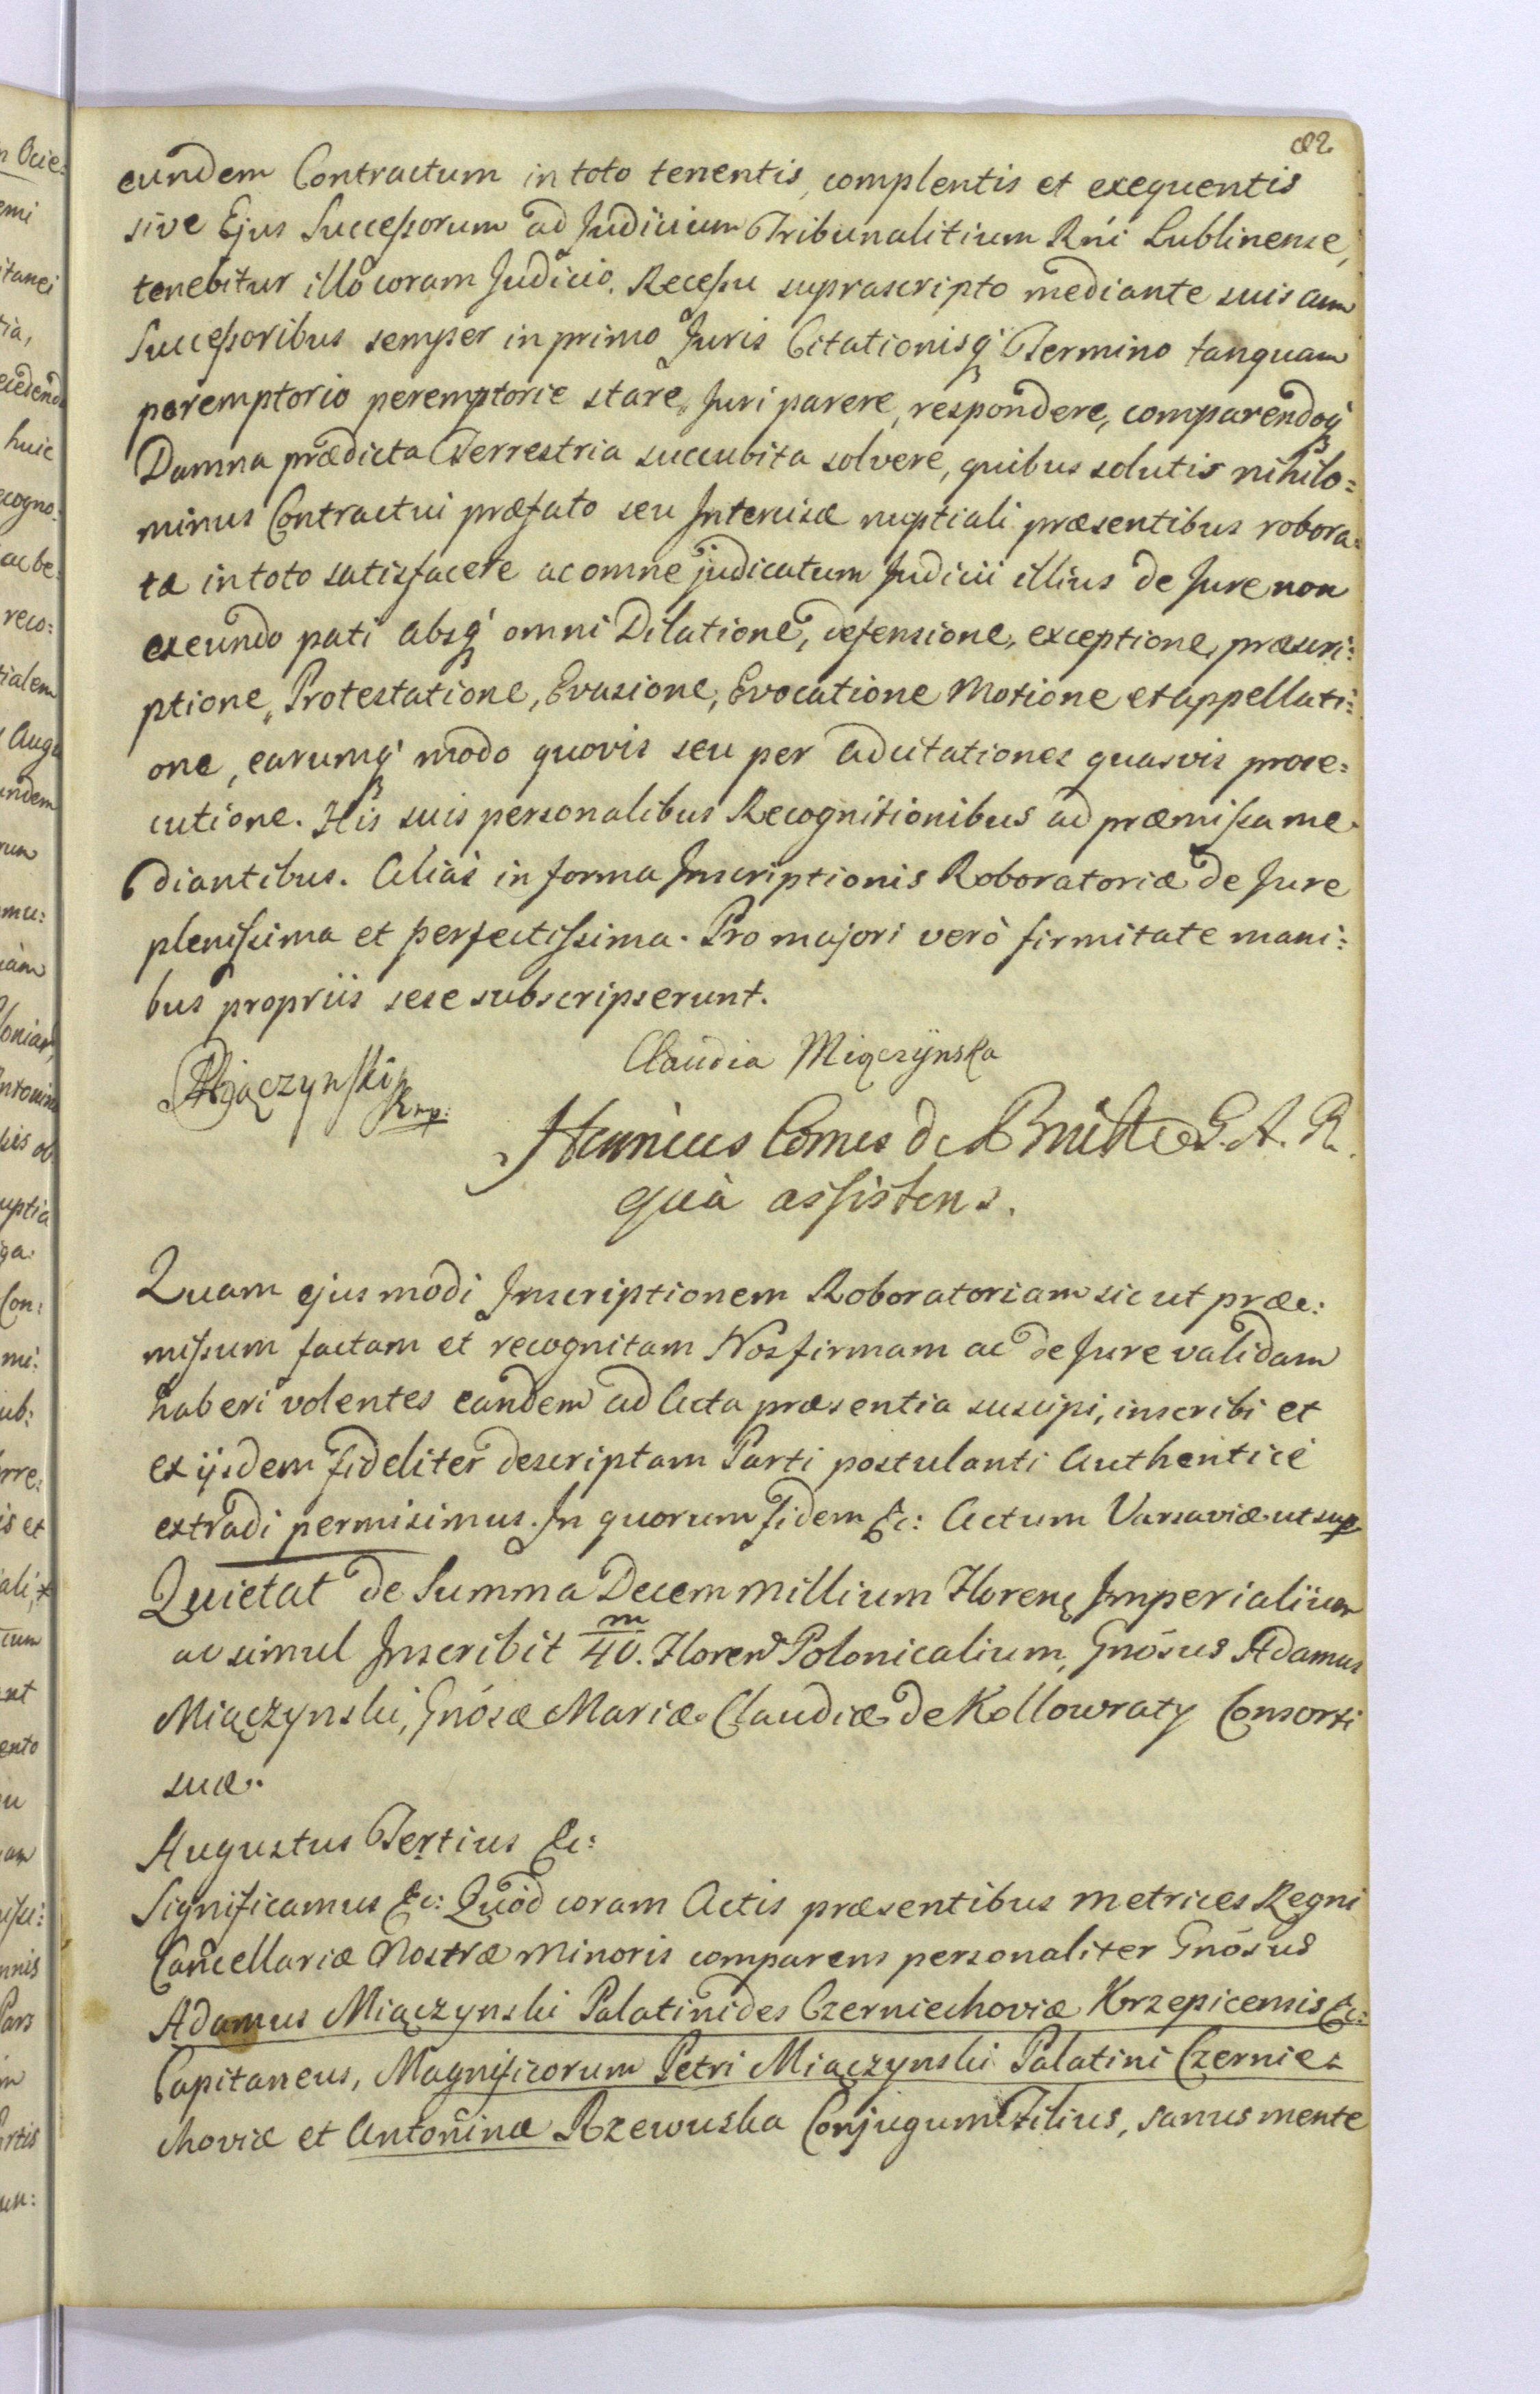 82
eundem Contractum in toto tenentis, complentis et exequentis
sive Ejus Successorum ad Judicium Tribunalitium Rńi Lublinense,
tenebitur illo coram Judicio. Recessu suprascripto mediante suis cum
Successoribus semper in primo Juris Citationisq́ Termino tanquam
peremptorio peremptorie stare, Juri parere, respondere, comparendoq́
Damna prædicta Terrestria succubita solvere, quibus solutis nihilo=
minus Contractui præfato seu Intercisæ nuptiali præsentibus robora=
tæ in toto satisfacere ac omne judicatum Judicii illius de Jure non
exeundo pati absq́ omni Dilatione, defensione, exceptione, præscri=
ptione, Protestatione, Evasione, Evocatione Motione et appellati=
one, earumq́ modo quovis seu per adcitationes quasvis prose=
cutione. His suis personalibus Recognitionibus ad præmissa me
diantibus. Aliàs in forma Inscriptionis Roboratoriæ de Jure
plenissima et perfectissima. Pro majori verò firmitate mani=
bus propriis sese subscripserunt.
Claudia Miączÿnska
Miączynski
Henricus Comes de Bruhl G. A. R.
quà assistens.
Quam ejusmodi Inscriptionem Roboratoriam sic ut præ=
missum factam et recognitam Nos firmam ac de Jure validam
haberi volentes eandem ad Acta præsentia suscipi, inscribi et
ex ijsdem fideliter descriptam Parti postulanti Authenticè
extradi permisimus. In quorum fidem &c: Actum Varsaviæ ut sup
Quietat de Summa Decem millium Floren Imperialium
ac simul Inscribit 40.m Floren Polonicalium, Gnósus Adamus
Miączynski, Gnósæ Mariæ Claudiæ de Kollowraty Consorti
suæ.
Augustus Tertius &c:
Significamus &c: Quod coram Actis præsentibus metrices Regni
Cancellariæ Nostræ Minoris comparens personaliter Gnósus
Adamus Miączynski Palatinides Czerniechoviæ Krzepicensis &c:
Capitaneus, Magnificorum Petri Miączynski Palatini Czernie=
choviæ et Antoninæ Rzewuska Conjugum Filius, sanus mente